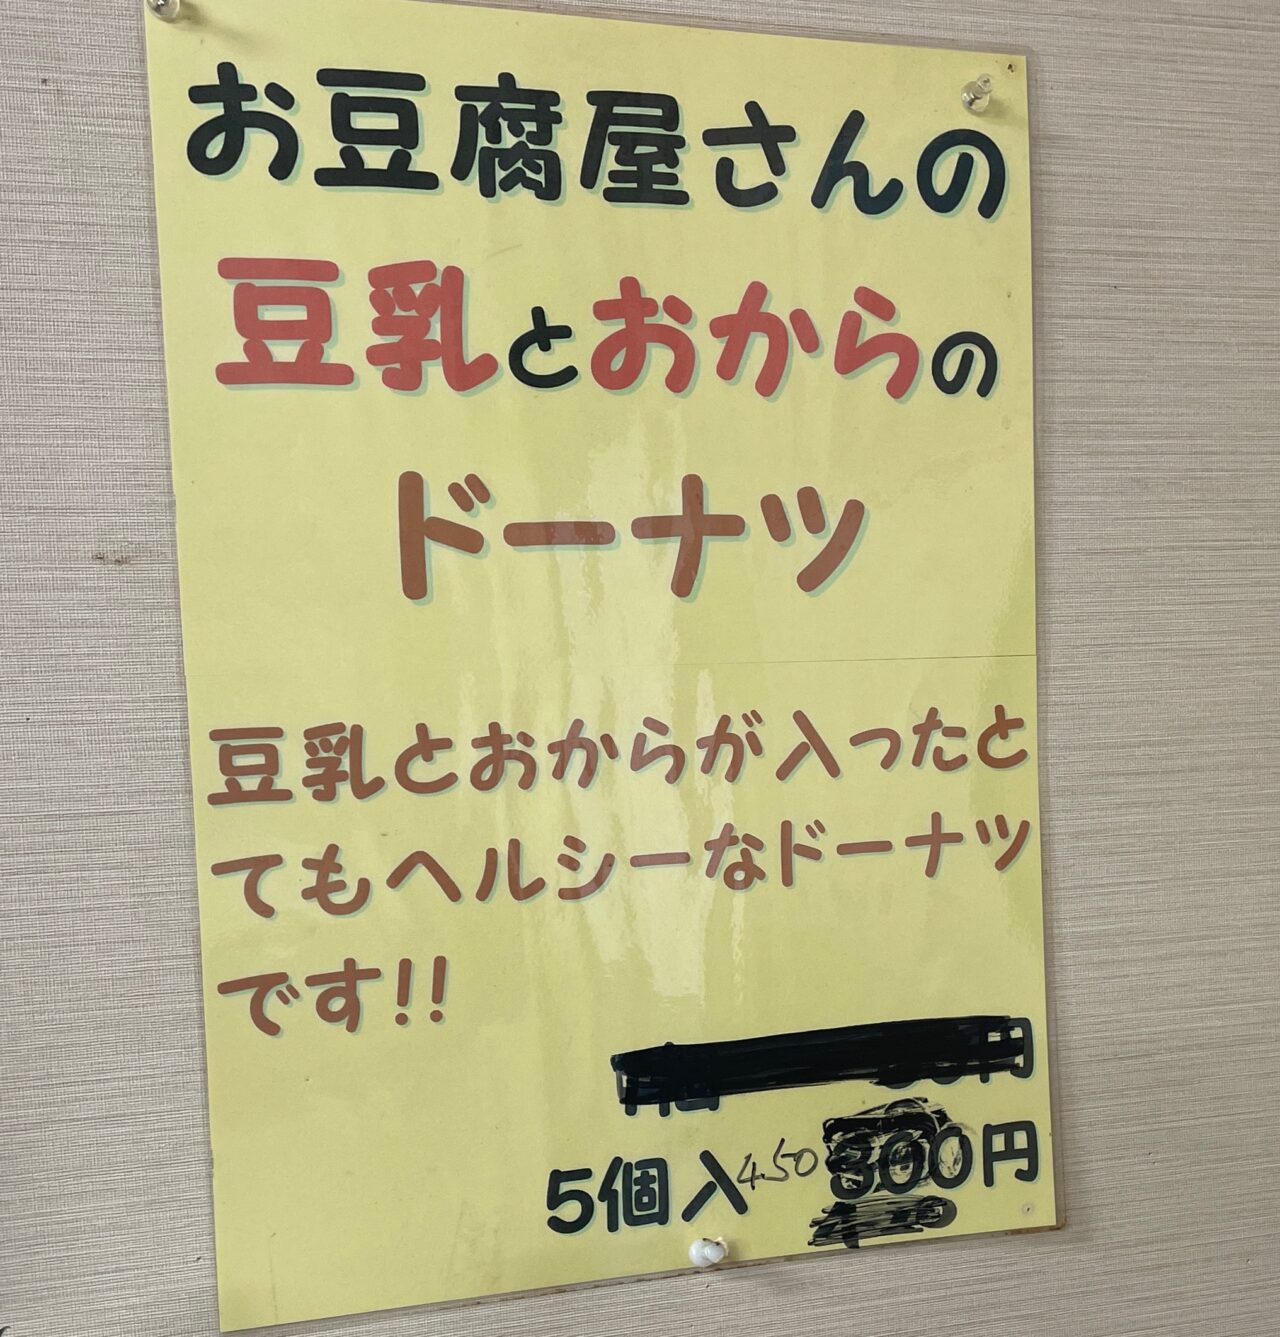 お豆腐屋さんの
豆乳とおからの
ドーナツ
豆乳とおからが入ったと
てもヘルシーなドーナツ
です!!
円
5個入450 300円